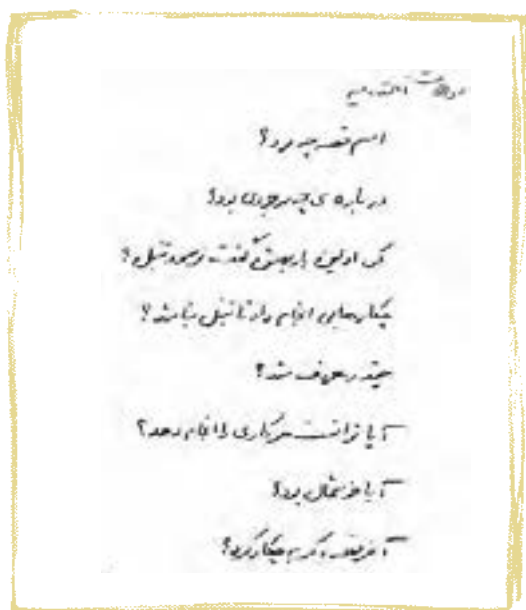 سوالات
اسم قصه چه بود؟
درباره ی چه موجودی بود؟
کی اولین بار بهش گفت تنبل؟
چکارهایی انجام داد تا تنبل نباشد؟
چقدر موفق شد؟
آیا توانست هرکاری را انجام دهد؟
آیا خوشحال بود؟
آخر قصه کرم چکار کرد؟